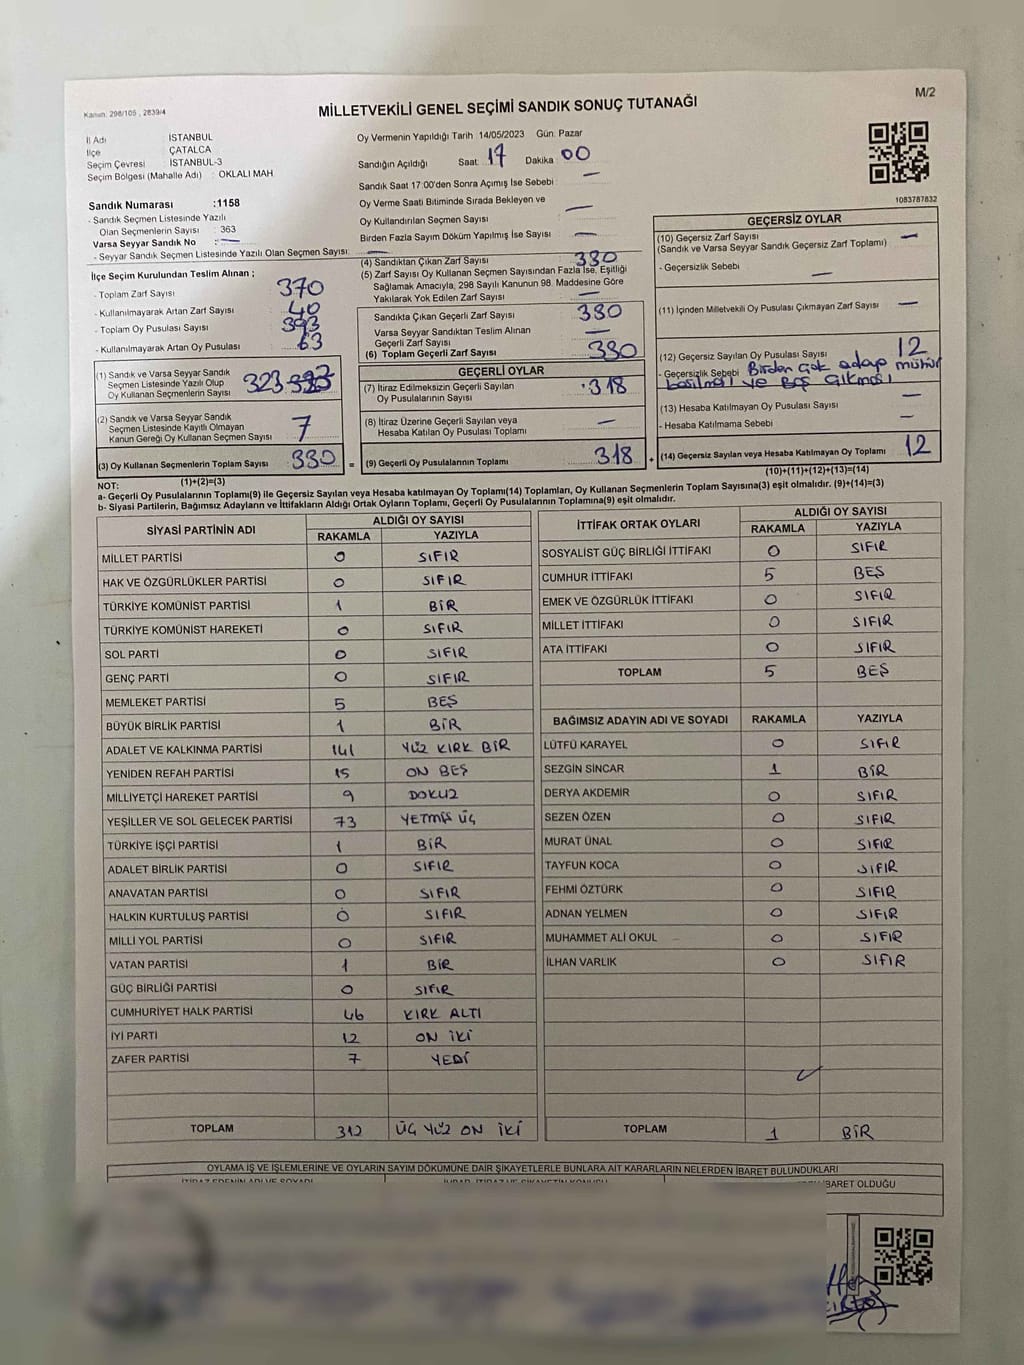 M/2
Kanun: 298/105 , 2839/4
MİLLETVEKİLİ GENEL SEÇİMİ SANDIK SONUÇ TUTANAĞI
İl Adı : İSTANBUL
İlçe : ÇATALCA
Seçim Çevresi : İSTANBUL-3
Seçim Bölgesi (Mahalle Adı) : OKLALI MAH
Sandık Numarası :1158
- Sandık Seçmen Listesinde Yazılı
Olan Seçmenlerin Sayısı : 363
Varsa Seyyar Sandık No : —
- Seyyar Sandık Seçmen Listesinde Yazılı Olan Seçmen Sayısı : —
İlçe Seçim Kurulundan Teslim Alınan ;
- Toplam Zarf Sayısı 370
- Kullanılmayarak Artan Zarf Sayısı 40
- Toplam Oy Pusulası Sayısı 393
- Kullanılmayarak Artan Oy Pusulası 63
(1) Sandık ve Varsa Seyyar Sandık
Seçmen Listesinde Yazılı Olup
Oy Kullanan Seçmenlerin Sayısı 323
(2) Sandık ve Varsa Seyyar Sandık
Seçmen Listesinde Kayıtlı Olmayan
Kanun Gereği Oy Kullanan Seçmen Sayısı 7
(3) Oy Kullanan Seçmenlerin Toplam Sayısı 330
(1)+(2)=(3)
Oy Vermenin Yapıldığı Tarih 14/05/2023 Gün: Pazar
Sandığın Açıldığı Saat 17 Dakika 00
Sandık Saat 17:00'den Sonra Açımış İse Sebebi : —
Oy Verme Saati Bitiminde Sırada Bekleyen ve
Oy Kullandırılan Seçmen Sayısı —
Birden Fazla Sayım Döküm Yapılmış İse Sayısı —
(4) Sandıktan Çıkan Zarf Sayısı 330
(5) Zarf Sayısı Oy Kullanan Seçmen Sayısından Fazla İse, Eşitliği
Sağlamak Amacıyla, 298 Sayılı Kanunun 98. Maddesine Göre
Yakılarak Yok Edilen Zarf Sayısı —
Sandıkta Çıkan Geçerli Zarf Sayısı 330
Varsa Seyyar Sandıktan Teslim Alınan
Geçerli Zarf Sayısı —
(6) Toplam Geçerli Zarf Sayısı 330
GEÇERLİ OYLAR
(7) İtiraz Edilmeksizin Geçerli Sayılan
Oy Pusulalarının Sayısı 318
(8) İtiraz Üzerine Geçerli Sayılan veya
Hesaba Katılan Oy Pusulası Toplamı —
= (9) Geçerli Oy Pusulalarının Toplamı 318
1083787832
GEÇERSİZ OYLAR
(10) Geçersiz Zarf Sayısı —
(Sandık ve Varsa Seyyar Sandık Geçersiz Zarf Toplamı)
- Geçersizlik Sebebi —
(11) İçinden Milletvekili Oy Pusulası Çıkmayan Zarf Sayısı —
(12) Geçersiz Sayılan Oy Pusulası Sayısı 12
- Geçersizlik Sebebi Birden çok adaya mühür
basılması ve Boş çıkması
(13) Hesaba Katılmayan Oy Pusulası Sayısı —
- Hesaba Katılmama Sebebi —
+ (14) Geçersiz Sayılan veya Hesaba Katılmayan Oy Toplamı 12
(10)+(11)+(12)+(13)=(14)
NOT:
a- Geçerli Oy Pusulalarının Toplamı(9) ile Geçersiz Sayılan veya Hesaba katılmayan Oy Toplamı(14) Toplamları, Oy Kullanan Seçmenlerin Toplam Sayısına(3) eşit olmalıdır. (9)+(14)=(3)
b- Siyasi Partilerin, Bağımsız Adayların ve İttifakların Aldığı Ortak Oyların Toplamı, Geçerli Oy Pusulalarının Toplamına(9) eşit olmalıdır.
SİYASİ PARTİNİN ADI ALDIĞI OY SAYISI
RAKAMLA YAZIYLA
MİLLET PARTİSİ 0 SIFIR
HAK VE ÖZGÜRLÜKLER PARTİSİ 0 SIFIR
TÜRKİYE KOMÜNİST PARTİSİ 1 BİR
TÜRKİYE KOMÜNİST HAREKETİ 0 SIFIR
SOL PARTİ 0 SIFIR
GENÇ PARTİ 0 SIFIR
MEMLEKET PARTİSİ 5 BEŞ
BÜYÜK BİRLİK PARTİSİ 1 BİR
ADALET VE KALKINMA PARTİSİ 141 YÜZ KIRK BİR
YENİDEN REFAH PARTİSİ 15 ON BEŞ
MİLLİYETÇİ HAREKET PARTİSİ 9 DOKUZ
YEŞİLLER VE SOL GELECEK PARTİSİ 73 YETMİŞ ÜÇ
TÜRKİYE İŞÇİ PARTİSİ 1 BİR
ADALET BİRLİK PARTİSİ 0 SIFIR
ANAVATAN PARTİSİ 0 SIFIR
HALKIN KURTULUŞ PARTİSİ 0 SIFIR
MİLLİ YOL PARTİSİ 0 SIFIR
VATAN PARTİSİ 1 BİR
GÜÇ BİRLİĞİ PARTİSİ 0 SIFIR
CUMHURİYET HALK PARTİSİ 46 KIRK ALTI
İYİ PARTİ 12 ON İKİ
ZAFER PARTİSİ 7 YEDİ
TOPLAM 312 ÜÇ YÜZ ON İKİ
İTTİFAK ORTAK OYLARI ALDIĞI OY SAYISI
RAKAMLA YAZIYLA
SOSYALİST GÜÇ BİRLİĞİ İTTİFAKI 0 SIFIR
CUMHUR İTTİFAKI 5 BEŞ
EMEK VE ÖZGÜRLÜK İTTİFAKI 0 SIFIR
MİLLET İTTİFAKI 0 SIFIR
ATA İTTİFAKI 0 SIFIR
TOPLAM 5 BEŞ
BAĞIMSIZ ADAYIN ADI VE SOYADI RAKAMLA YAZIYLA
LÜTFÜ KARAYEL 0 SIFIR
SEZGİN SİNCAR 1 BİR
DERYA AKDEMİR 0 SIFIR
SEZEN ÖZEN 0 SIFIR
MURAT ÜNAL 0 SIFIR
TAYFUN KOCA 0 SIFIR
FEHMİ ÖZTÜRK 0 SIFIR
ADNAN YELMEN 0 SIFIR
MUHAMMET ALİ OKUL 0 SIFIR
İLHAN VARLIK 0 SIFIR
TOPLAM 1 BİR
OYLAMA İŞ VE İŞLEMLERİNE VE OYLARIN SAYIM DÖKÜMÜNE DAİR ŞİKAYETLERLE BUNLARA AİT KARARLARIN NELERDEN İBARET BULUNDUKLARI
İTİRAZ EDENİN ADI VE SOYADI
İBARET OLDUĞU